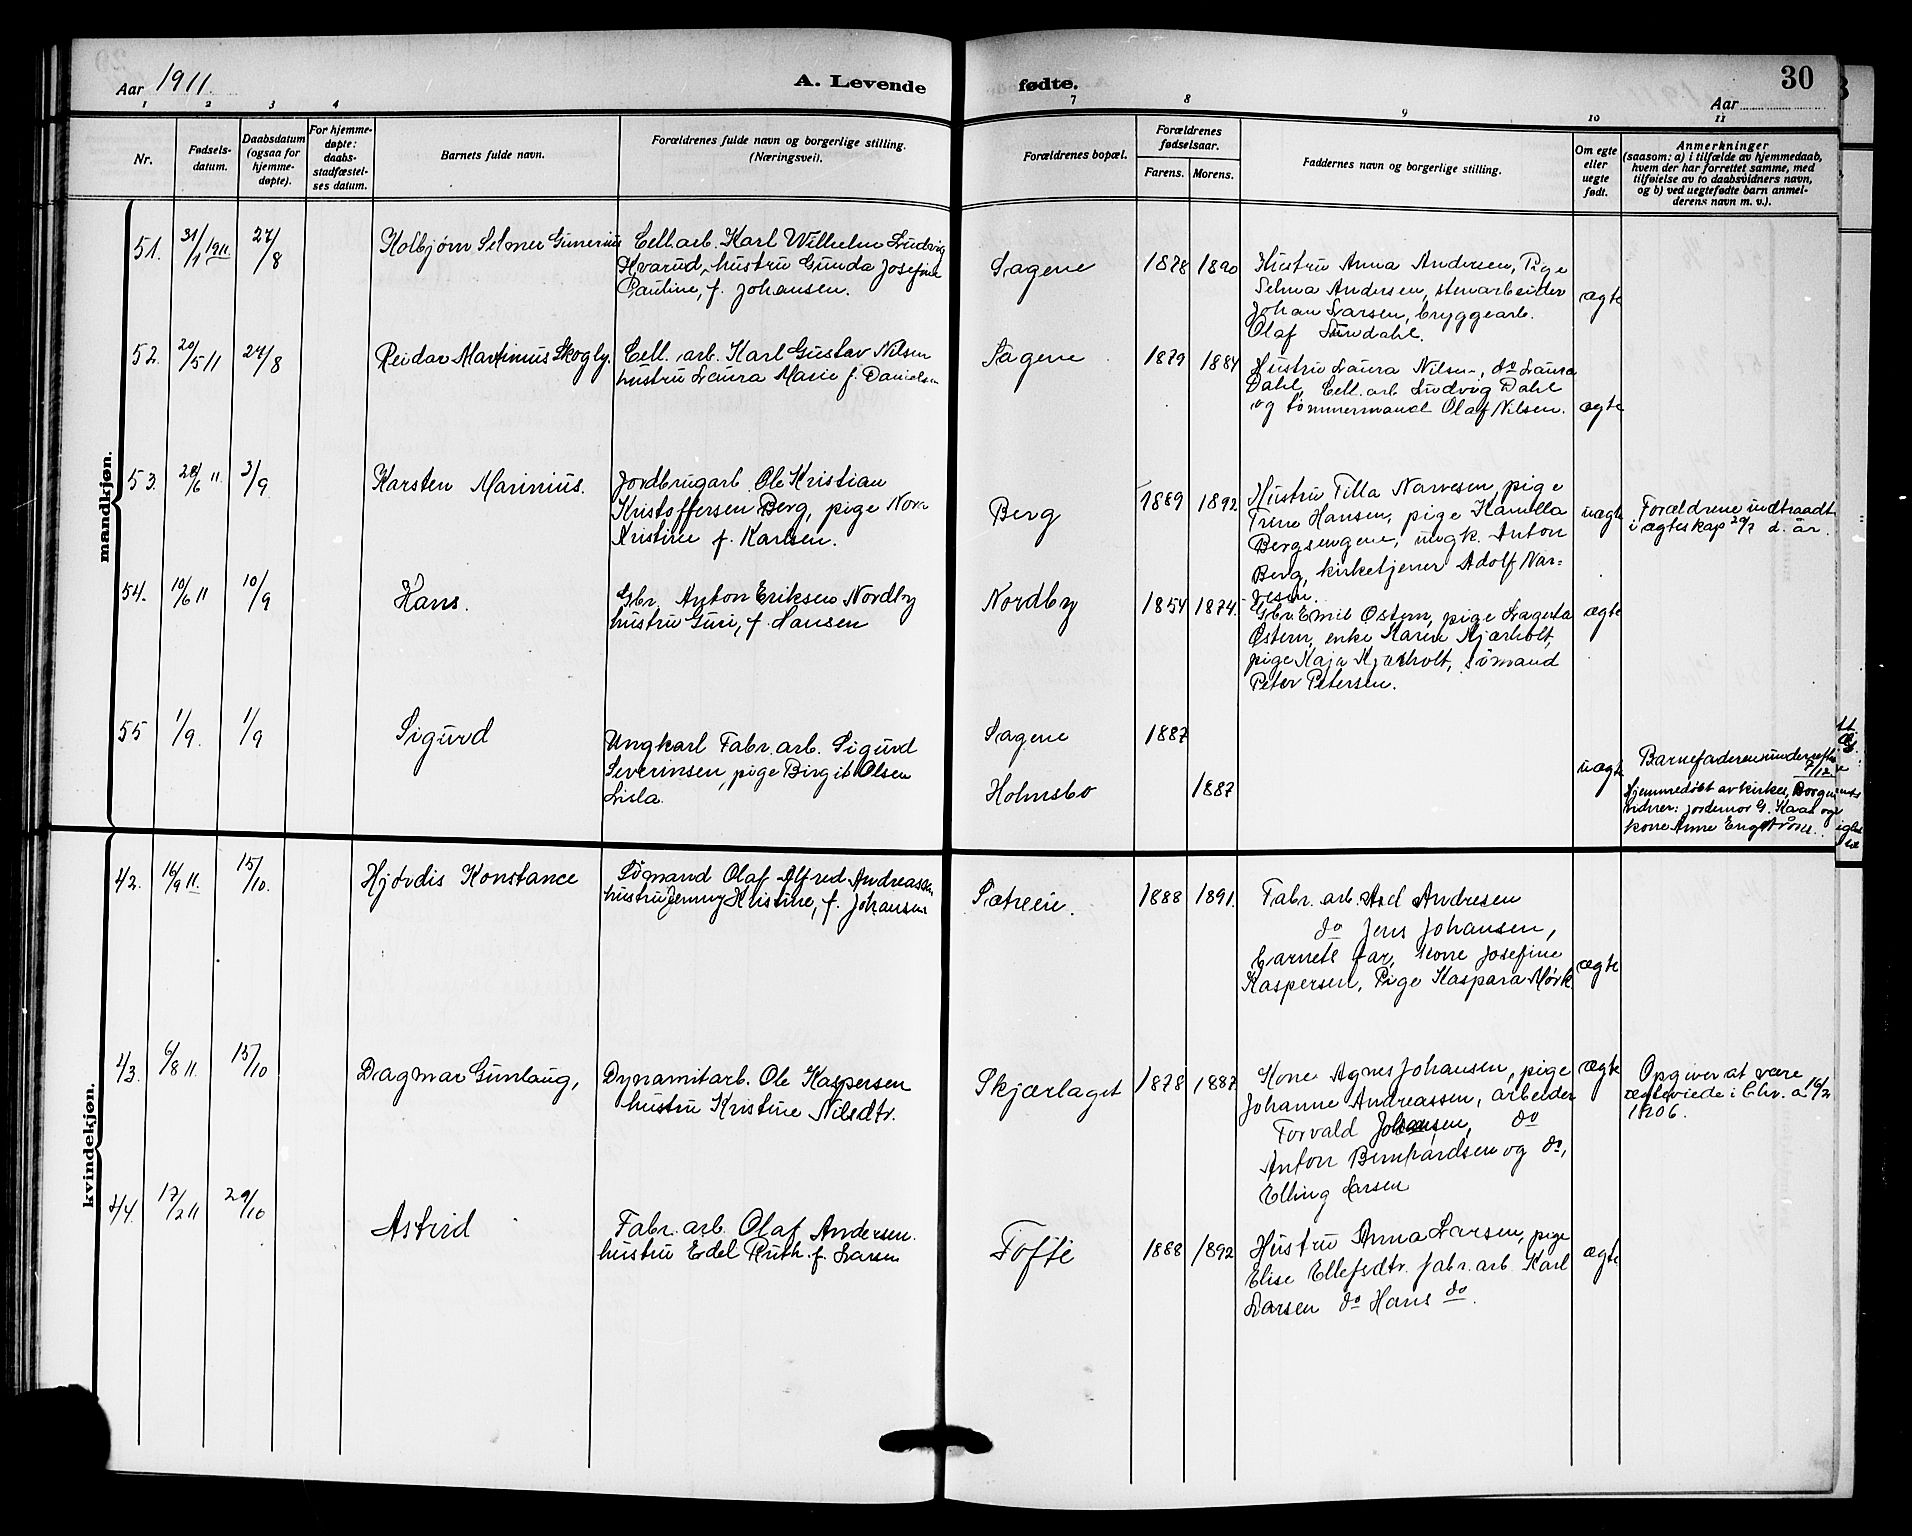 Aar 1911.
A. Levende fødte.
30
Aar
1 2 3 4 7 8 9 10 11
Nr.
Fødsels-
datum.
Daabsdatum
(ogsaa for
hjemme-
døpte).
For hjemme-
døpte:
daabs-
stadfæstel-
ses datum.
Barnets fulde navn.
Forældrenes fulde navn og borgerlige stilling.
(Næringsvei).
Forældrenes bopæl.
Forældrenes
fødselsaar.
Farens. Morens.
Faddernes navn og borgerlige stilling.
Om egte
eller
uegte
født.
Anmerkninger
(saasom: a) i tilfælde av hjemmedaab,
hvem der har forrettet samme, med
tilføielse av to daabsvidners navn,
og b) ved uegtefødte barn anmel-
derens navn m. v.).
mandkjøn.
51. 31/1 1911 27/8
Kolbjørn Selmer Gunerius
Cell. arb. Karl Wilhelm Ludvig
Kvarud, hustru Gunda Josefine
Pauline, f. Johansen.
Sagene
1878 1890
Hustru Anna Andersen, Pige
Selma Andersen, stenarbeider
Johan Larsen, bryggearb.
Olaf Sundahl.
ægte
52. 20/5 11 27/8
Reidar Martinius Skogly.
Cell. arb. Karl Gustav Nilsen
hustru Laura Marie f. Danielsen
Sagene
1879 1884
Hustru Laura Nilsen, do Laura
Dahl, Cell. arb. Ludvig Dahl
og tømmermand Olaf Nilsen.
ægte
53. 28/6 11 3/9
Karsten Marinius.
Jordbrugarb. Ole Kristian
Kristoffersen Berg, pige Nora
Kristine f. Karlsen.
Berg
1889 1892
Hustru Tilla Narvesen, pige
Trine Hansen, pige Kamilla
Bergsengene, ungk. Anton
Berg, kirketjener Adolf Nar-
vesen.
uægte
Forældrene indtraadt
i ægteskap 29/7 d. år.
54. 10/6 11 10/9
Hans.
Gbr. Anton Eriksen Nordby
hustru Guri, f. Hansen
Nordby
1854 1874.
Gbr. Emil Østern, pige Lagerta
Østern, enke Karen Kjærholt,
pige Kaja Kjærholt, sømand
Peter Petersen.
ægte
55 1/9. 1/9
Sigurd
Ungkarl Fabr. arb. Sigurd
Severinsen, pige Birgit Olsen
Lisla.
Sagene
Holmsbo
1887
1887
uægte
Barnefaderen underrettet
7/12.
Hjemmedøbt av kirkes. Borgen
Vidner: jordemor G. Kaas og
kone Anne Engstrøm.
kvindekjøn.
42. 16/9 11. 15/10.
Hjørdis Konstance
Sømand Olaf Alfred Andreassen
hustru Jenny Kristine, f. Johansen
Sætreeie.
1888 1891.
Fabr. arb. Andresen
do Jens Johansen,
barnets far, kone Josefine
Kaspersen, Pige Kaspara Mørk
ægte
43. 6/8 11. 15/10
Dagmar Gunlaug,
Dynamitarb. Ole Kaspersen
hustru Kristine Nilsdtr.
Skjærlaget
1878 1887
Kone Agnes Johansen, pige
Johanne Andreassen, arbeider
Torvald Johansen, do
Anton Bernhardsen og do,
Elling Larsen
ægte
Opgiver at være
ægteviede i Chr. a 16/2
1906.
44. 17/2 11 29/10
Astrid
Fabr. arb. Olaf Andersen.
hustru Edel Ruth f. Larsen
Tofte
1888 1892
Hustru Anna Larsen, pige
Elise Ellefsdtr. fabr. arb. Karl
Larsen do Hans do.
ægte